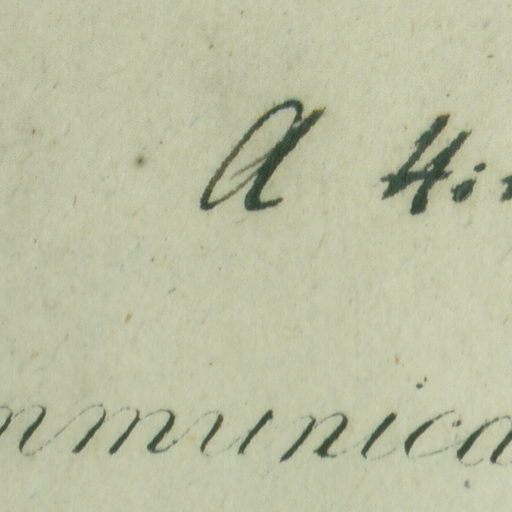 A 4:
mmunica